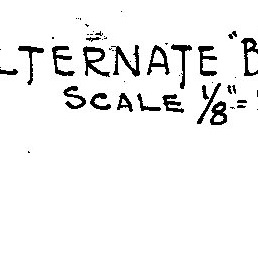 LTERNATE "B
SCALE 1/8"=